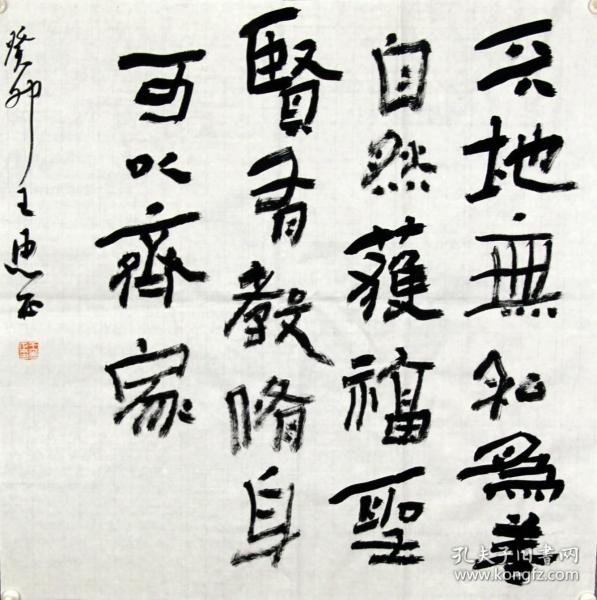 天地無私為善
自然獲福聖
賢有教脩身
可以齊家
癸卯 王忠正
孔夫子旧书网
www.kongfz.com